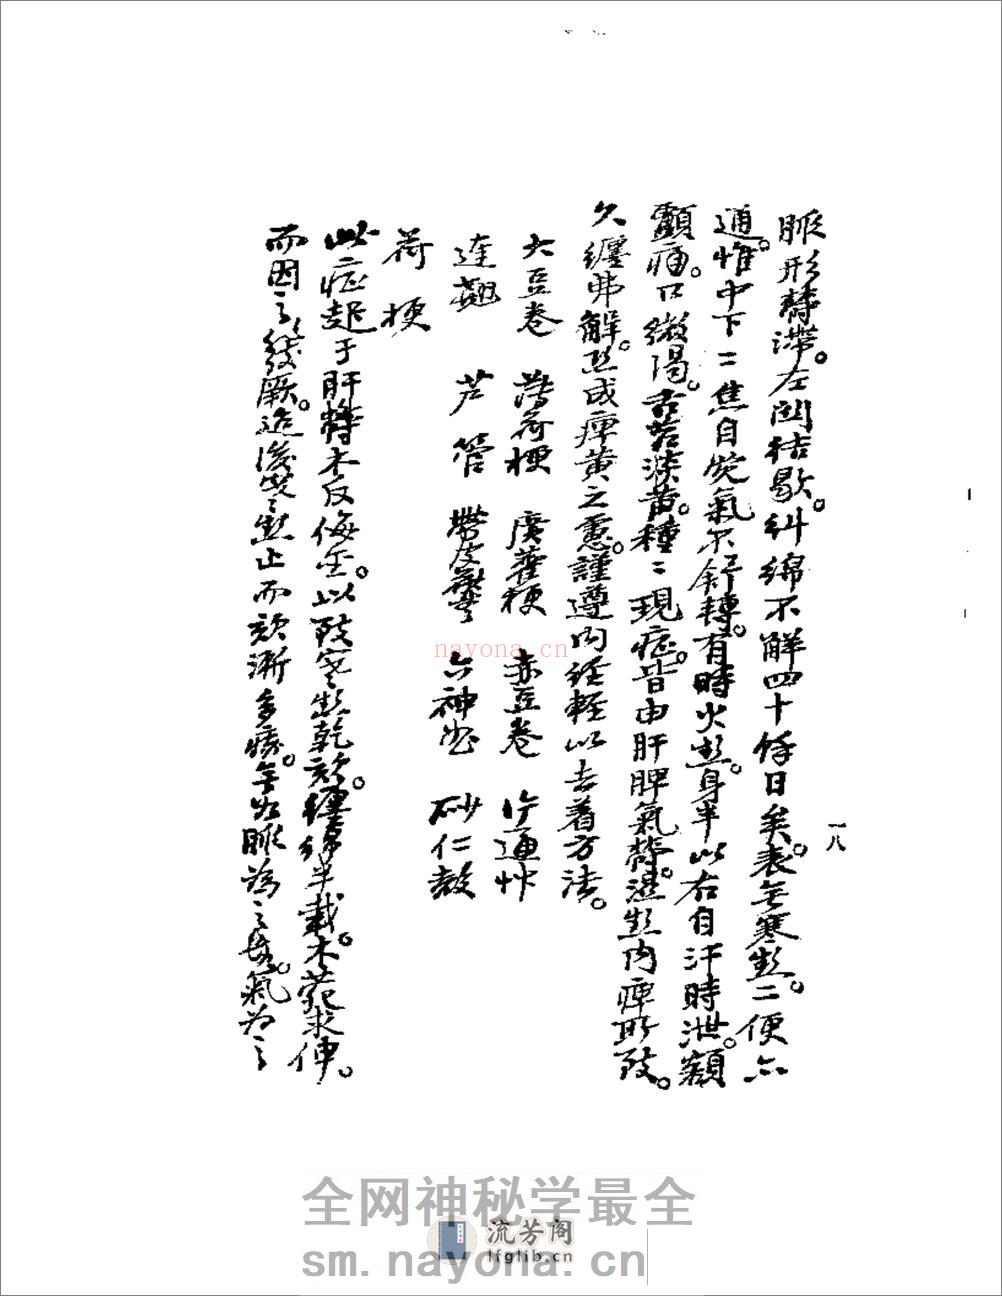 脈形鬱滯。左関結歇。糾綿不解四十馀日矣。表無寒熱。二便亦
通。惟中下二焦自覚氣不舒轉。有時火熱。身半以右自汗時泄。額
顱痛。口微渴。舌苔淡黃。種〻現症。皆由肝脾氣鬱。濕熱内痺所致。
久纏弗解。恐成痺黃之慮。謹遵内经輕以去着方法。
大豆卷　薄荷梗　廣藿梗　赤豆卷　片通艸
連翹　芦管　帶皮苓　六神曲　砂仁殼
荷梗
此症起于肝鬱。木反侮金。以致寒熱乾欬。纏綿半載。木菀求伸。
而因之發厥。迨後熱止而欬漸多痰。無如脈為之。氣为之
一八
nayona.cn
全网神秘学最全
流芳阁
lfglib.cn
sm.nayona.cn